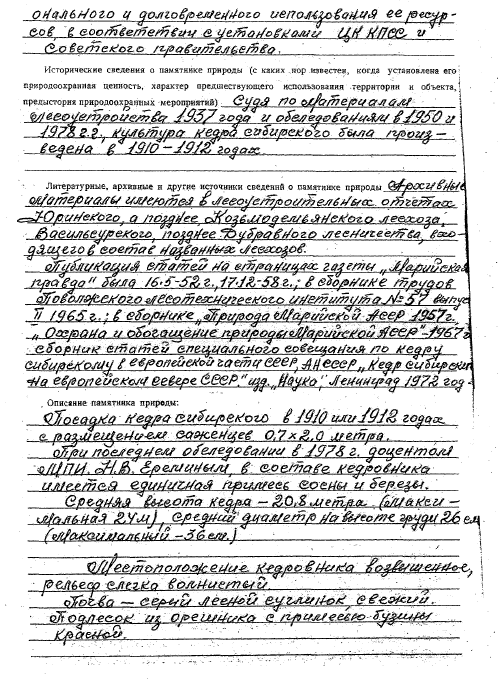 онального и долговременного использования ее ресур-
сов, в соответствии с установками ЦК КПСС и
Советского правительства.
Исторические сведения о памятнике природы (с каких пор известен, когда установлена его
природоохранная ценность, характер предшествующего использования территории и объекта,
предыстория природоохранных мероприятий) Судя по материалам
лесоустройства 1937 года и обследованиям в 1950 и
1978 г.г., культура кедра сибирского была произ-
ведена в 1910-1912 годах.
Литературные, архивные и другие источники сведений о памятнике природы Архивные
материалы имеются в лесоустроительных отчетах
Юринского, а позднее Козьмодемьянского лесхоза,
Васильсурского, позднее Дубравного лесничества, вхо-
дящего в состав названных лесхозов.
Публикация статей на страницах газеты „Марийская
правда" была 16.5-52 г., 17.12-58 г.; в сборнике трудов
Поволжского лесотехнического института №57 выпуск
II 1965 г.; в сборнике „Природа Марийской АССР 1957 г.
„Охрана и обогащение природы Марийской АССР"-1967 г
сборник статей специального совещания по кедру
сибирскому в европейской части СССР, АН СССР „Кедр сибирский
на европейском севере СССР." изд. „Наука", Ленинград 1972 год.
Описание памятника природы:
Посадка кедра сибирского в 1910 или 1912 годах
с размещением саженцев 0,7×2,0 метра.
При последнем обследовании в 1978 г. доцентом
МПИ. Н.В. Ереминым, в составе кедровника
имеется единичная примесь сосны и березы.
Средняя высота кедра - 20,8 метра (Макси-
мальная 24м), средний диаметр на высоте груди 26 см
(Максимальный - 36 см.)
Местоположение кедровника возвышенное,
рельеф слегка волнистый.
Почва - серый лесной суглинок, свежий.
Подлесок из орешника с примесью бузины
красной.